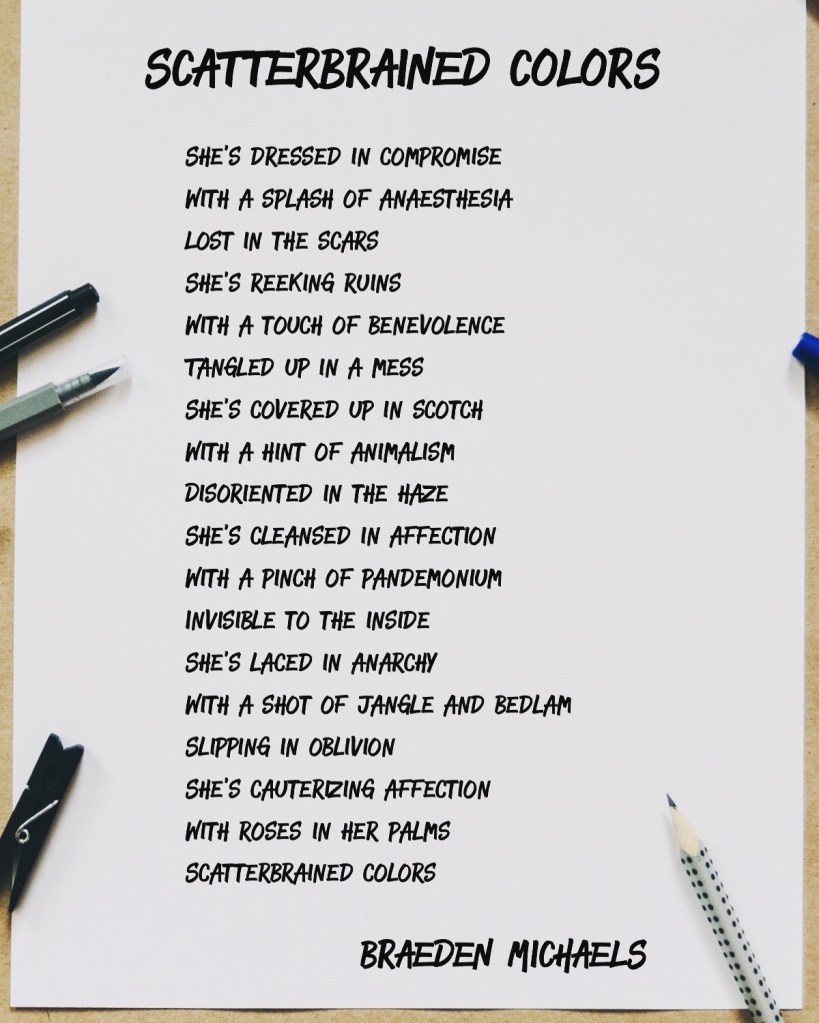 SCATTERBRAINED COLORS
SHE'S DRESSED IN COMPROMISE
WITH A SPLASH OF ANAESTHESIA
LOST IN THE SCARS
SHE'S REEKING RUINS
WITH A TOUCH OF BENEVOLENCE
TANGLED UP IN A MESS
SHE'S COVERED UP IN SCOTCH
WITH A HINT OF ANIMALISM
DISORIENTED IN THE HAZE
SHE'S CLEANSED IN AFFECTION
WITH A PINCH OF PANDEMONIUM
INVISIBLE TO THE INSIDE
SHE'S LACED IN ANARCHY
WITH A SHOT OF JANGLE AND BEDLAM
SLIPPING IN OBLIVION
SHE'S CAUTERIZING AFFECTION
WITH ROSES IN HER PALMS
SCATTERBRAINED COLORS
BRAEDEN MICHAELS